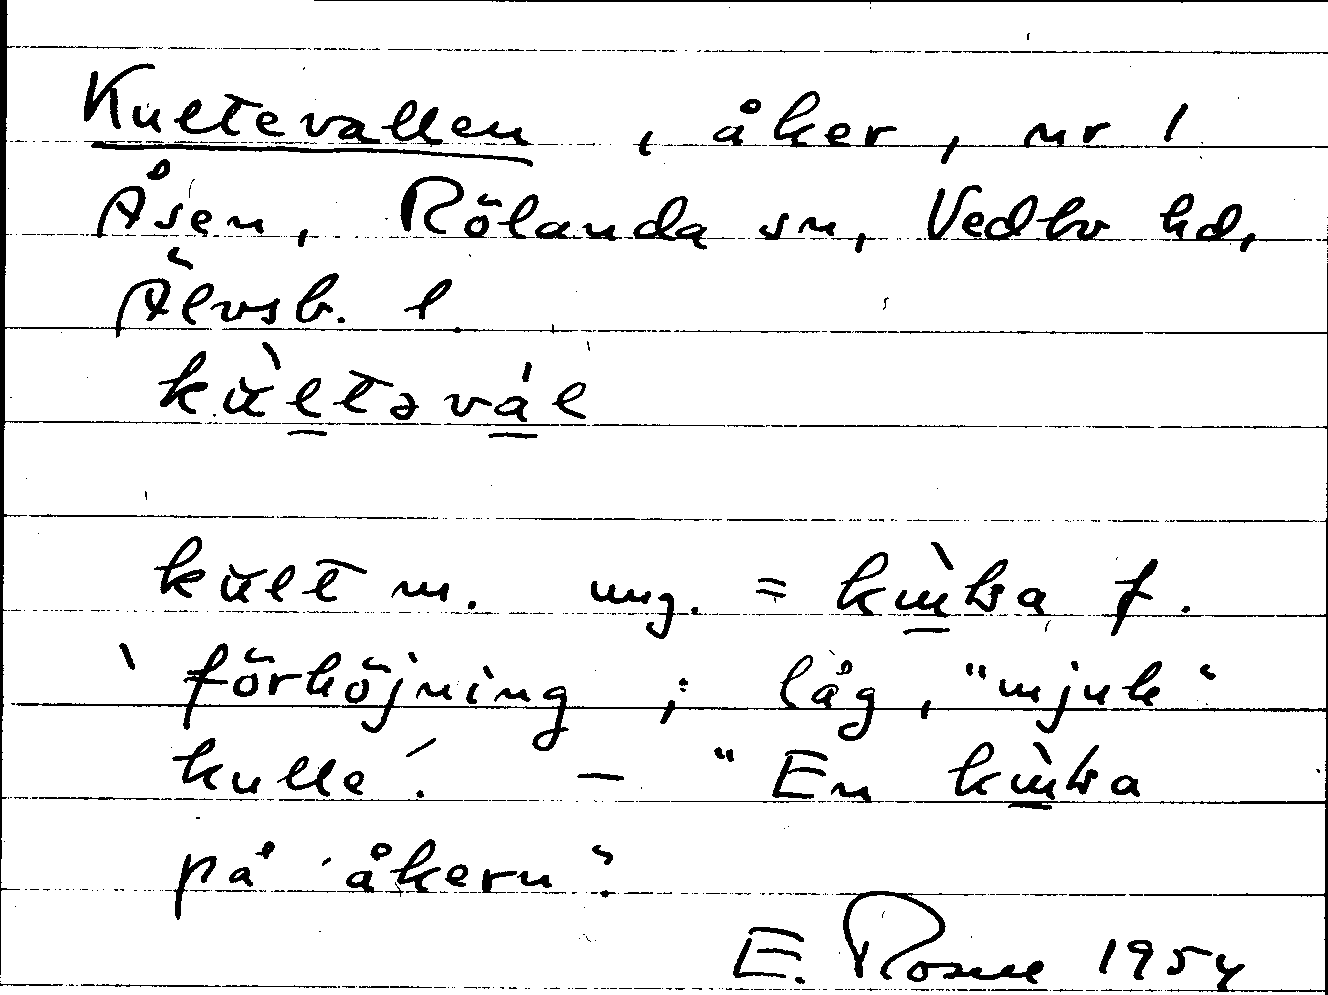 Kultevallen, åker, nr 1
Åsen, Rölanda sn, Vedbo hd,
Älvsb. l.
kùltəvál
kult m. ung. =  f.
'förhöjning; låg, "mjuk"
kulle'. – "En
på åkern".
E. Rosell 1954